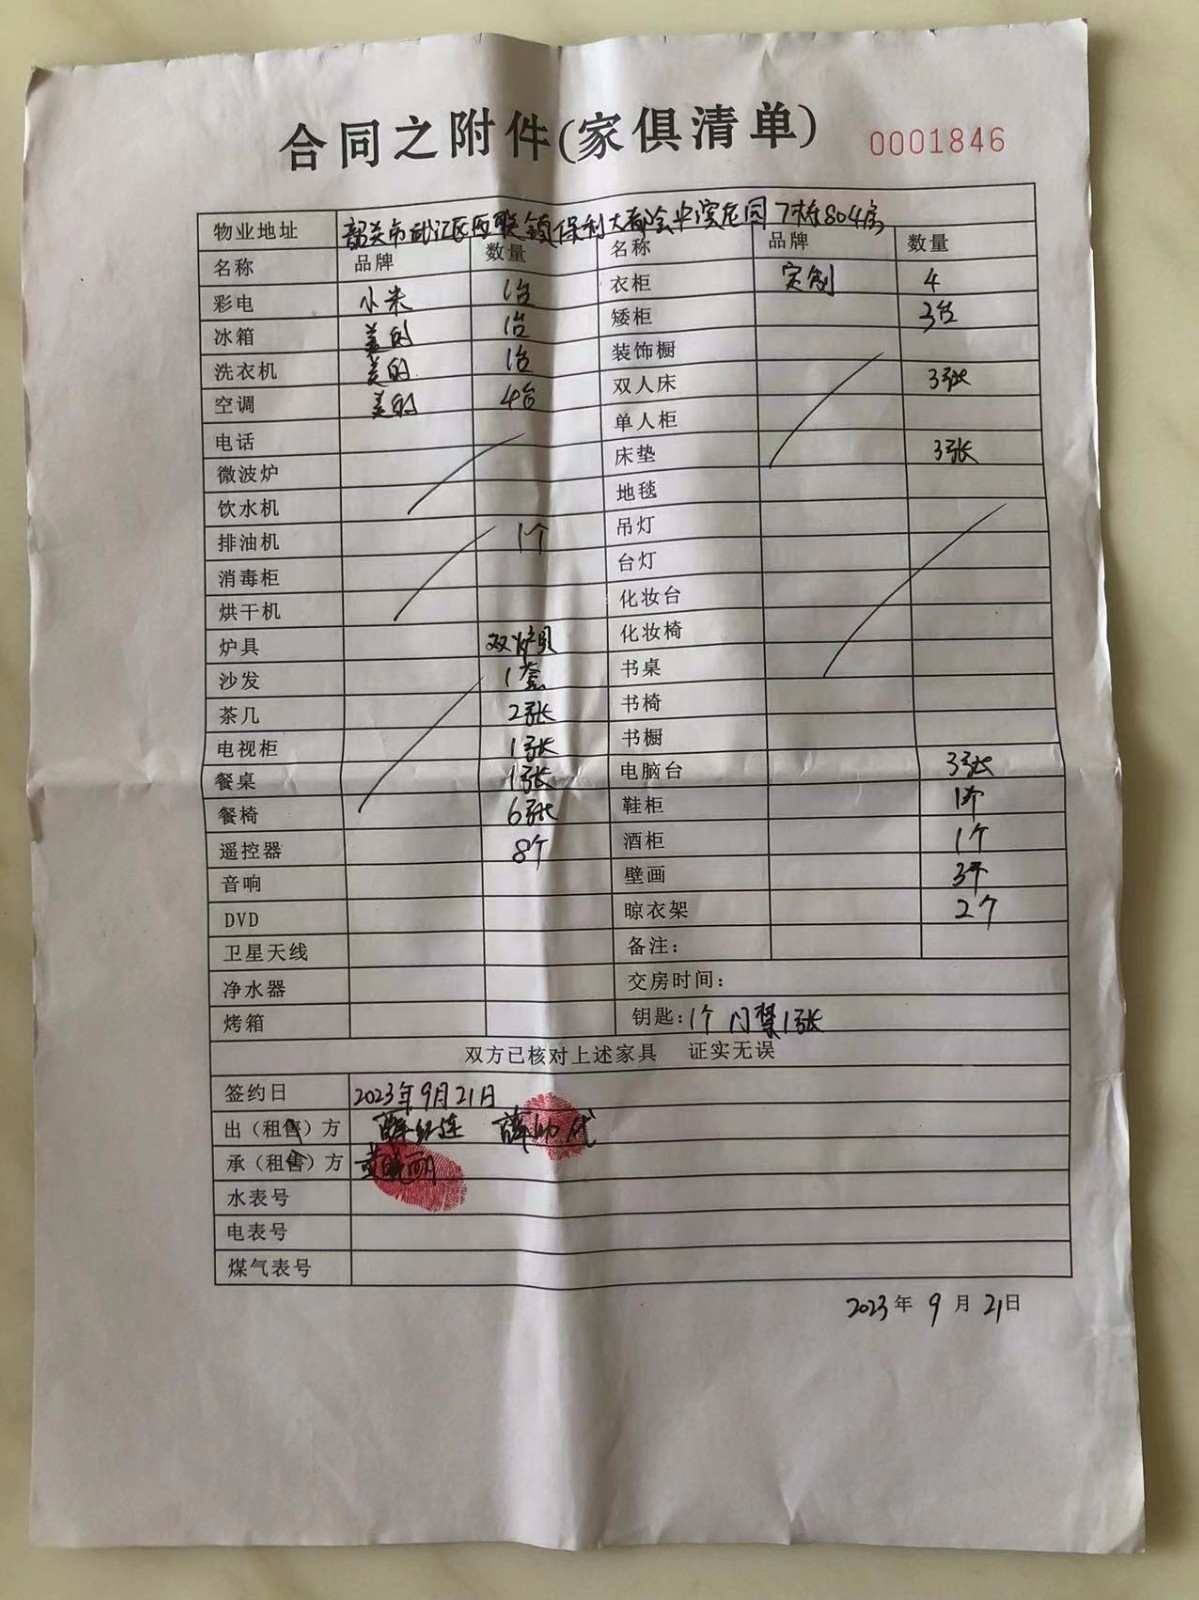 合同之附件(家俱清单) 0001846
物业地址 韶关市武江区西联镇保利大都会中滨花园7栋804房
名称 品牌 数量 名称 品牌 数量
彩电 小米 1台 衣柜 定制 4
冰箱 美的 1台 矮柜 3台
洗衣机 美的 1台 装饰橱
空调 美的 4台 双人床 3张
电话 单人柜
微波炉 床垫 3张
饮水机 地毯
排油机 1个 吊灯
消毒柜 台灯
烘干机 化妆台
炉具 双炉具 化妆椅
沙发 1套 书桌
茶几 2张 书椅
电视柜 1张 书橱
餐桌 1张 电脑台 3张
餐椅 6张 鞋柜 1个
遥控器 8个 酒柜 1个
音响 壁画 3
DVD 晾衣架 2个
卫星天线 备注：
净水器 交房时间：
烤箱 钥匙：1个 门禁1张
双方已核对上述家具 证实无误
签约日 2023年9月21日
出（租售）方 薛红连 薛
承（租售）方 黄晓丽
水表号
电表号
煤气表号
2023年9月21日